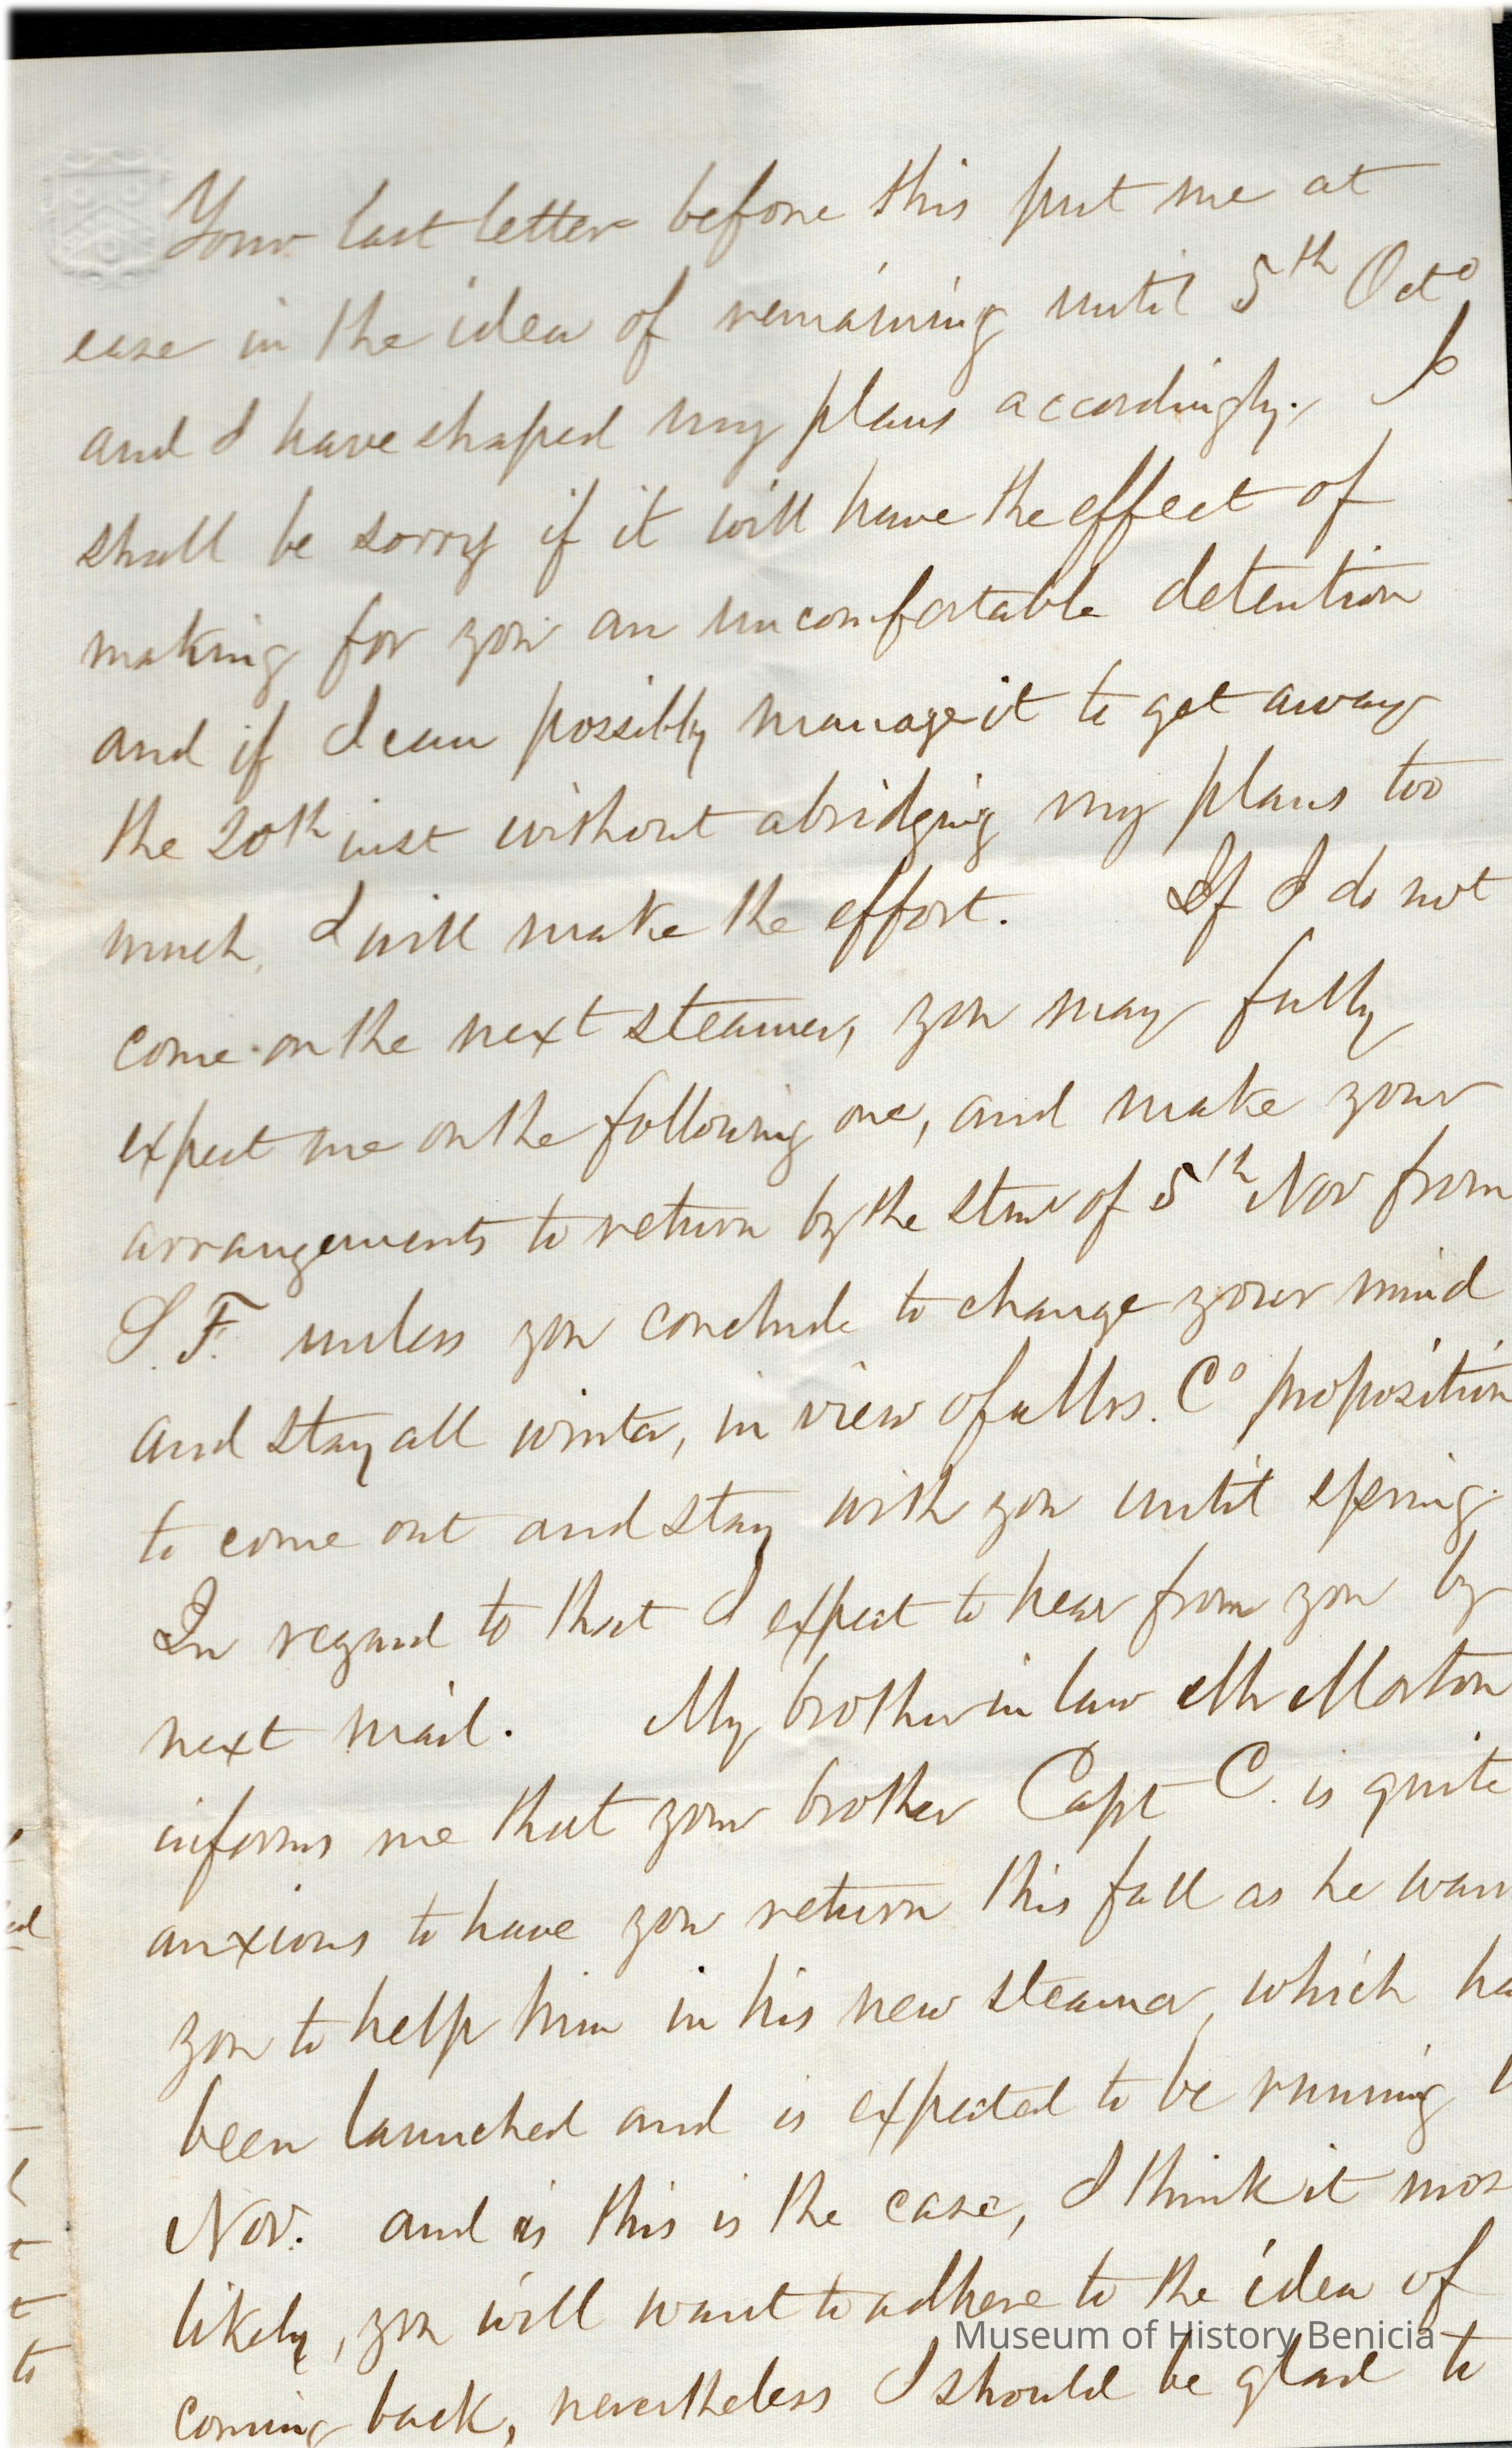 Your last letter before this put me at
ease in the idea of remaining until 5th Octo
and I have shaped my plans accordingly. I
shall be sorry if it will have the effect of
making for you an uncomfortable detention
and if I can possibly manage it to get away
the 20th inst without abridging my plans too
much, I will make the effort. If I do not
come on the next steamer, you may fully
expect me on the following one, and make your
arrangements to return by the stmr of 5th Nov from
S. F. unless you conclude to change your mind
and stay all winter, in view of Mrs. Cs proposition
to come out and stay with you until spring.
In regard to that I expect to hear from you by
next mail. My brother in law Mr Morton
informs me that your brother Capt C. is quite
anxious to have you return this fall as he wan
you to help him in his new steamer, which ha
been launched and is expected to be running
Nov. and is this is the case, I think it mos
likely, you will want to adhere to the idea of
Museum of History Benicia
coming back, nevertheless I should be glad to